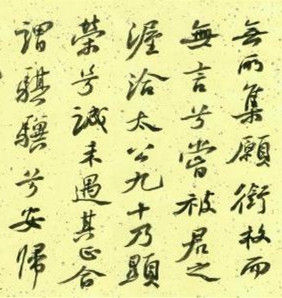 無所集願銜枚而
無言兮嘗被君之
渥洽太公九十乃顯
榮兮誠未遇其匹合
謂騏驥兮安歸